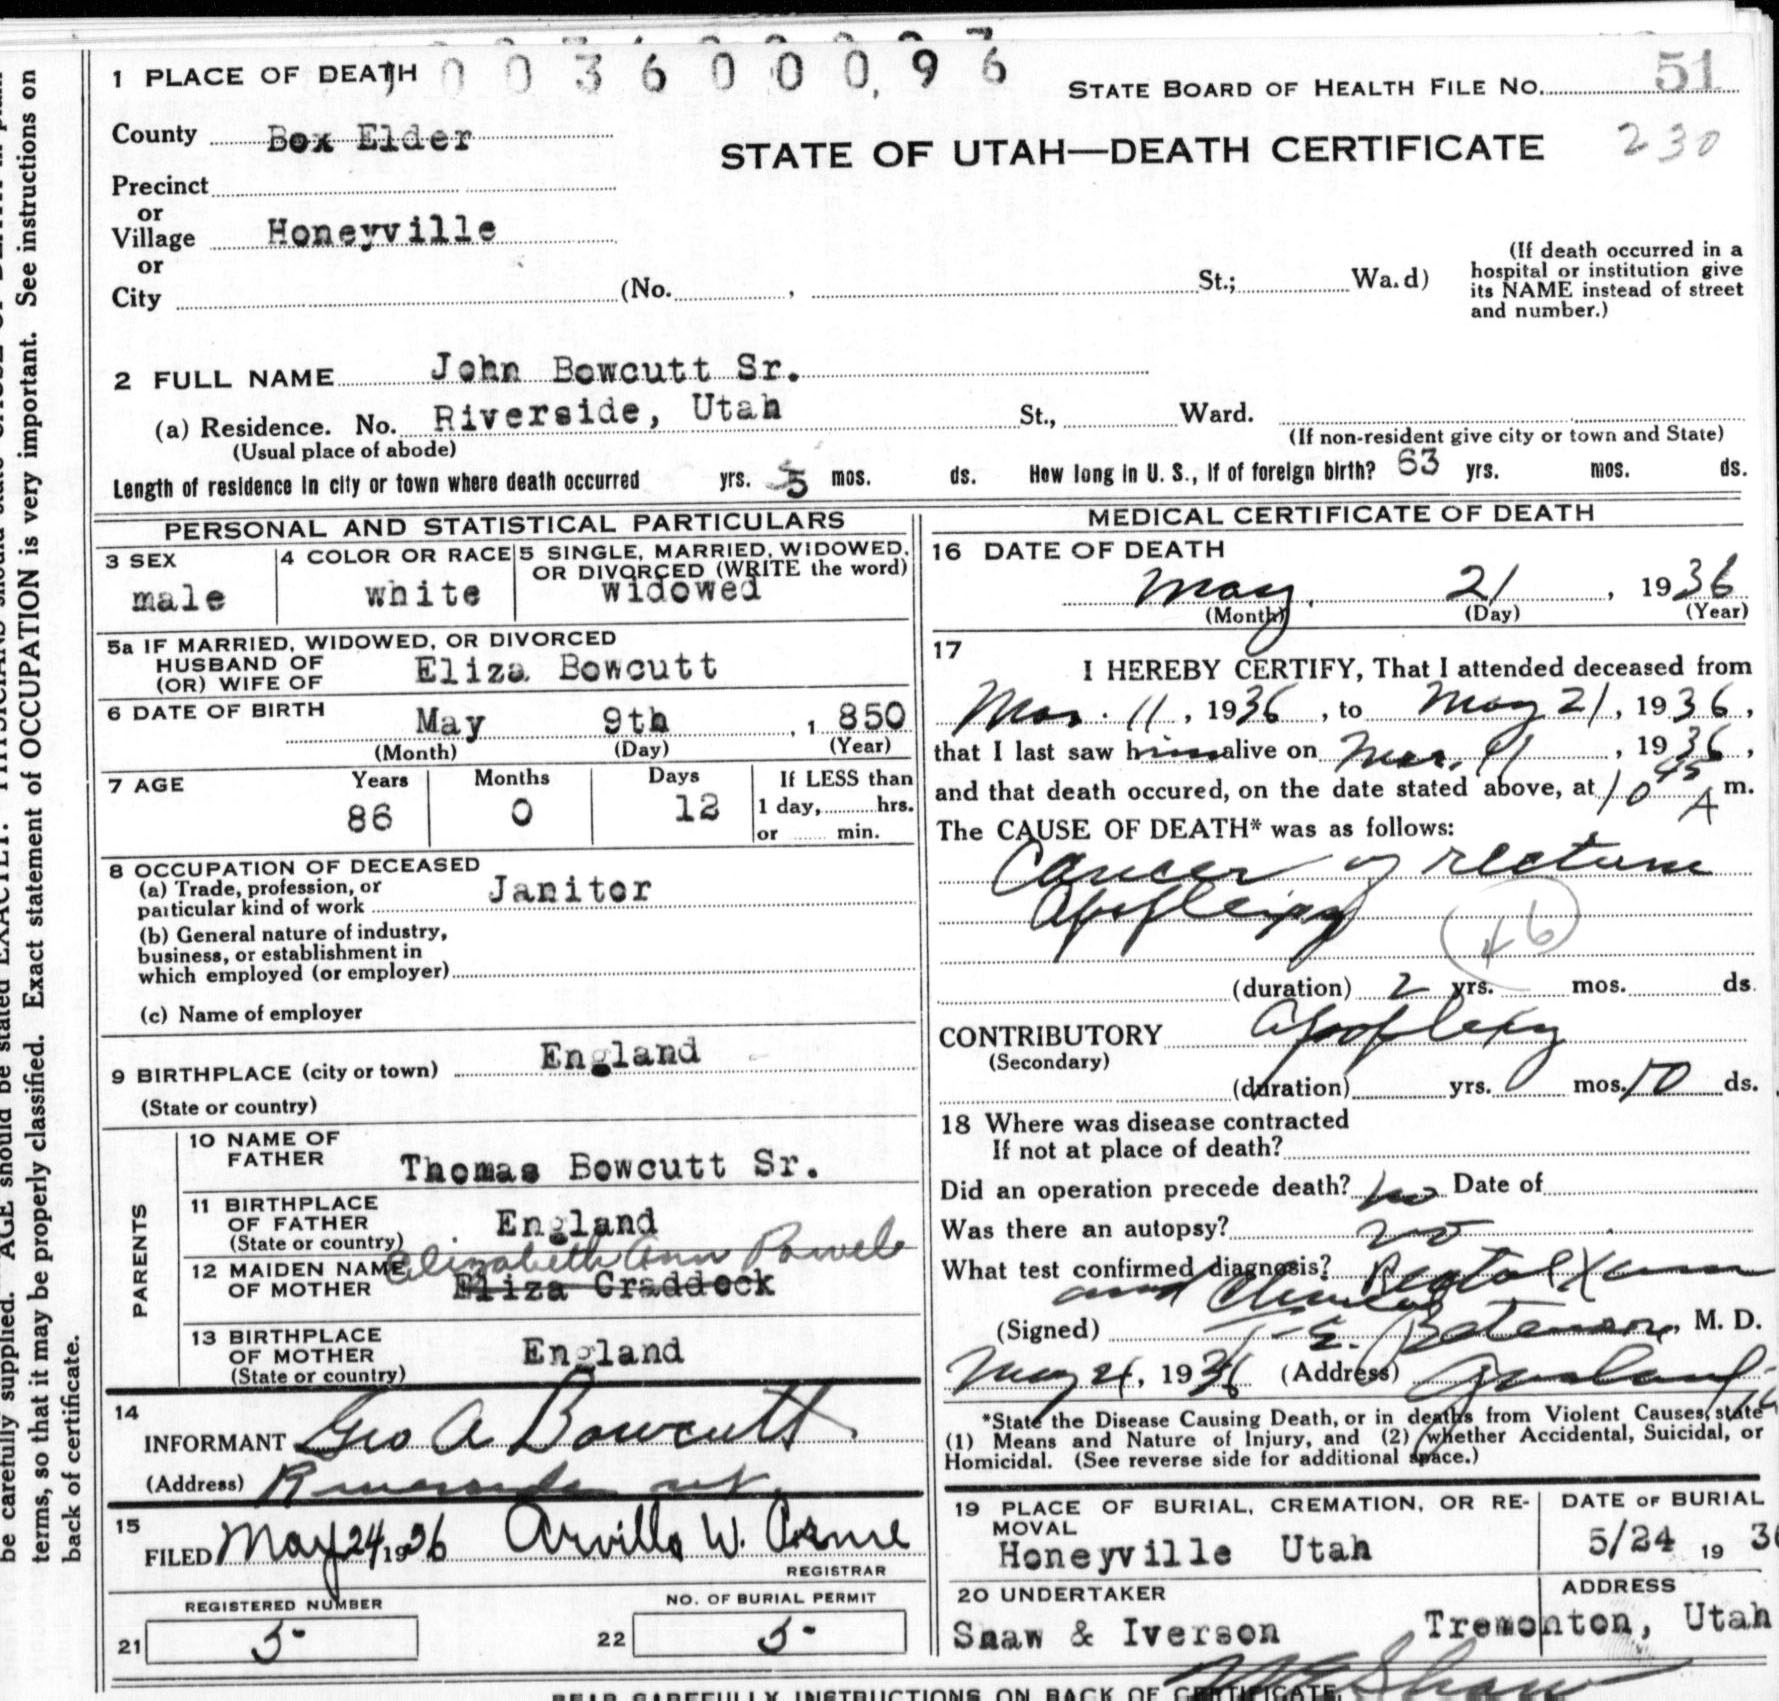 be carefully supplied. AGE should be stated EXACTLY. PHYSICIANS should state CAUSE OF DEATH in plain
terms, so that it may be properly classified. Exact statement of OCCUPATION is very important. See instructions on
back of certificate.
1 PLACE OF DEATH 0 0 3 6 0 0 0 9 6
STATE BOARD OF HEALTH FILE NO. 51
230
County Box Elder
STATE OF UTAH—DEATH CERTIFICATE
Precinct
or
Village Honeyville
or
City (No. , St.; Wa.d)
(If death occurred in a
hospital or institution give
its NAME instead of street
and number.)
2 FULL NAME John Bowcutt Sr.
(a) Residence. No. Riverside, Utah St., Ward.
(Usual place of abode) (If non-resident give city or town and State)
Length of residence in city or town where death occurred yrs. 5 mos. ds. How long in U. S., if of foreign birth? 63 yrs. mos. ds.
PERSONAL AND STATISTICAL PARTICULARS
3 SEX male
4 COLOR OR RACE white
5 SINGLE, MARRIED, WIDOWED,
OR DIVORCED (WRITE the word)
widowed
5a IF MARRIED, WIDOWED, OR DIVORCED
HUSBAND OF
(OR) WIFE OF Eliza Bowcutt
6 DATE OF BIRTH May 9th , 1 850
(Month) (Day) (Year)
7 AGE Years Months Days If LESS than
86 0 12 1 day, hrs.
or min.
8 OCCUPATION OF DECEASED
(a) Trade, profession, or
particular kind of work Janitor
(b) General nature of industry,
business, or establishment in
which employed (or employer)
(c) Name of employer
9 BIRTHPLACE (city or town) England
(State or country)
PARENTS
10 NAME OF
FATHER Thomas Bowcutt Sr.
11 BIRTHPLACE
OF FATHER England
(State or country)
Elizabeth Ann Powell
12 MAIDEN NAME
OF MOTHER Eliza Craddock
13 BIRTHPLACE
OF MOTHER England
(State or country)
14
INFORMANT Geo A Bowcutt
(Address) Riverside ut.
15
FILED May 24, 1936 Arvilla W.
REGISTRAR
REGISTERED NUMBER NO. OF BURIAL PERMIT
21 5- 22 5-
MEDICAL CERTIFICATE OF DEATH
16 DATE OF DEATH
May, 21 , 1936
(Month) (Day) (Year)
17
I HEREBY CERTIFY, That I attended deceased from
Mar. 11, 1936, to May 21, 1936,
that I last saw him alive on Mar. 11, 1936,
and that death occured, on the date stated above, at 10 45 A m.
The CAUSE OF DEATH* was as follows:
Cancer of rectum
Apoplexy
46
(duration) 2 yrs. mos. ds.
CONTRIBUTORY Apoplexy
(Secondary)
(duration) yrs. mos. 10 ds.
18 Where was disease contracted
If not at place of death?
Did an operation precede death? no Date of
Was there an autopsy? no
What test confirmed diagnosis? Rectal Exam
and Clinical
(Signed) E. , M. D.
May 21, 1936 (Address) Garland
*State the Disease Causing Death, or in deaths from Violent Causes, state
(1) Means and Nature of Injury, and (2) whether Accidental, Suicidal, or
Homicidal. (See reverse side for additional space.)
19 PLACE OF BURIAL, CREMATION, OR RE-
MOVAL
Honeyville Utah
DATE OF BURIAL
5/24 19 36
20 UNDERTAKER ADDRESS
Shaw & Iverson Tremonton, Utah
Shaw
READ CAREFULLY INSTRUCTIONS ON BACK OF CERTIFICATE.